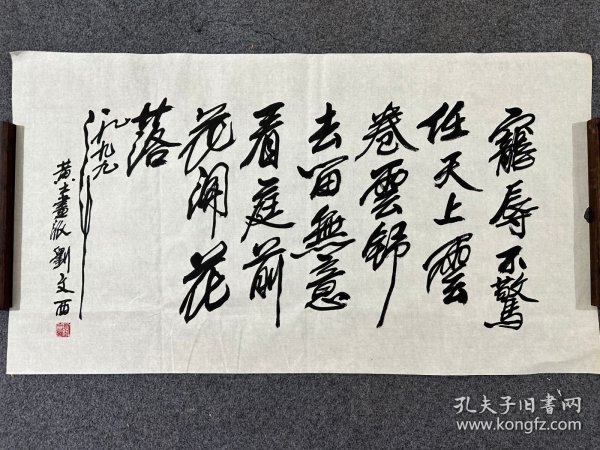 寵辱不驚
任天上雲
卷雲舒
去留無意
看庭前
花開花
落
一九九九年
黄土畫派劉文西
孔夫子旧书网
www.kongfz.com